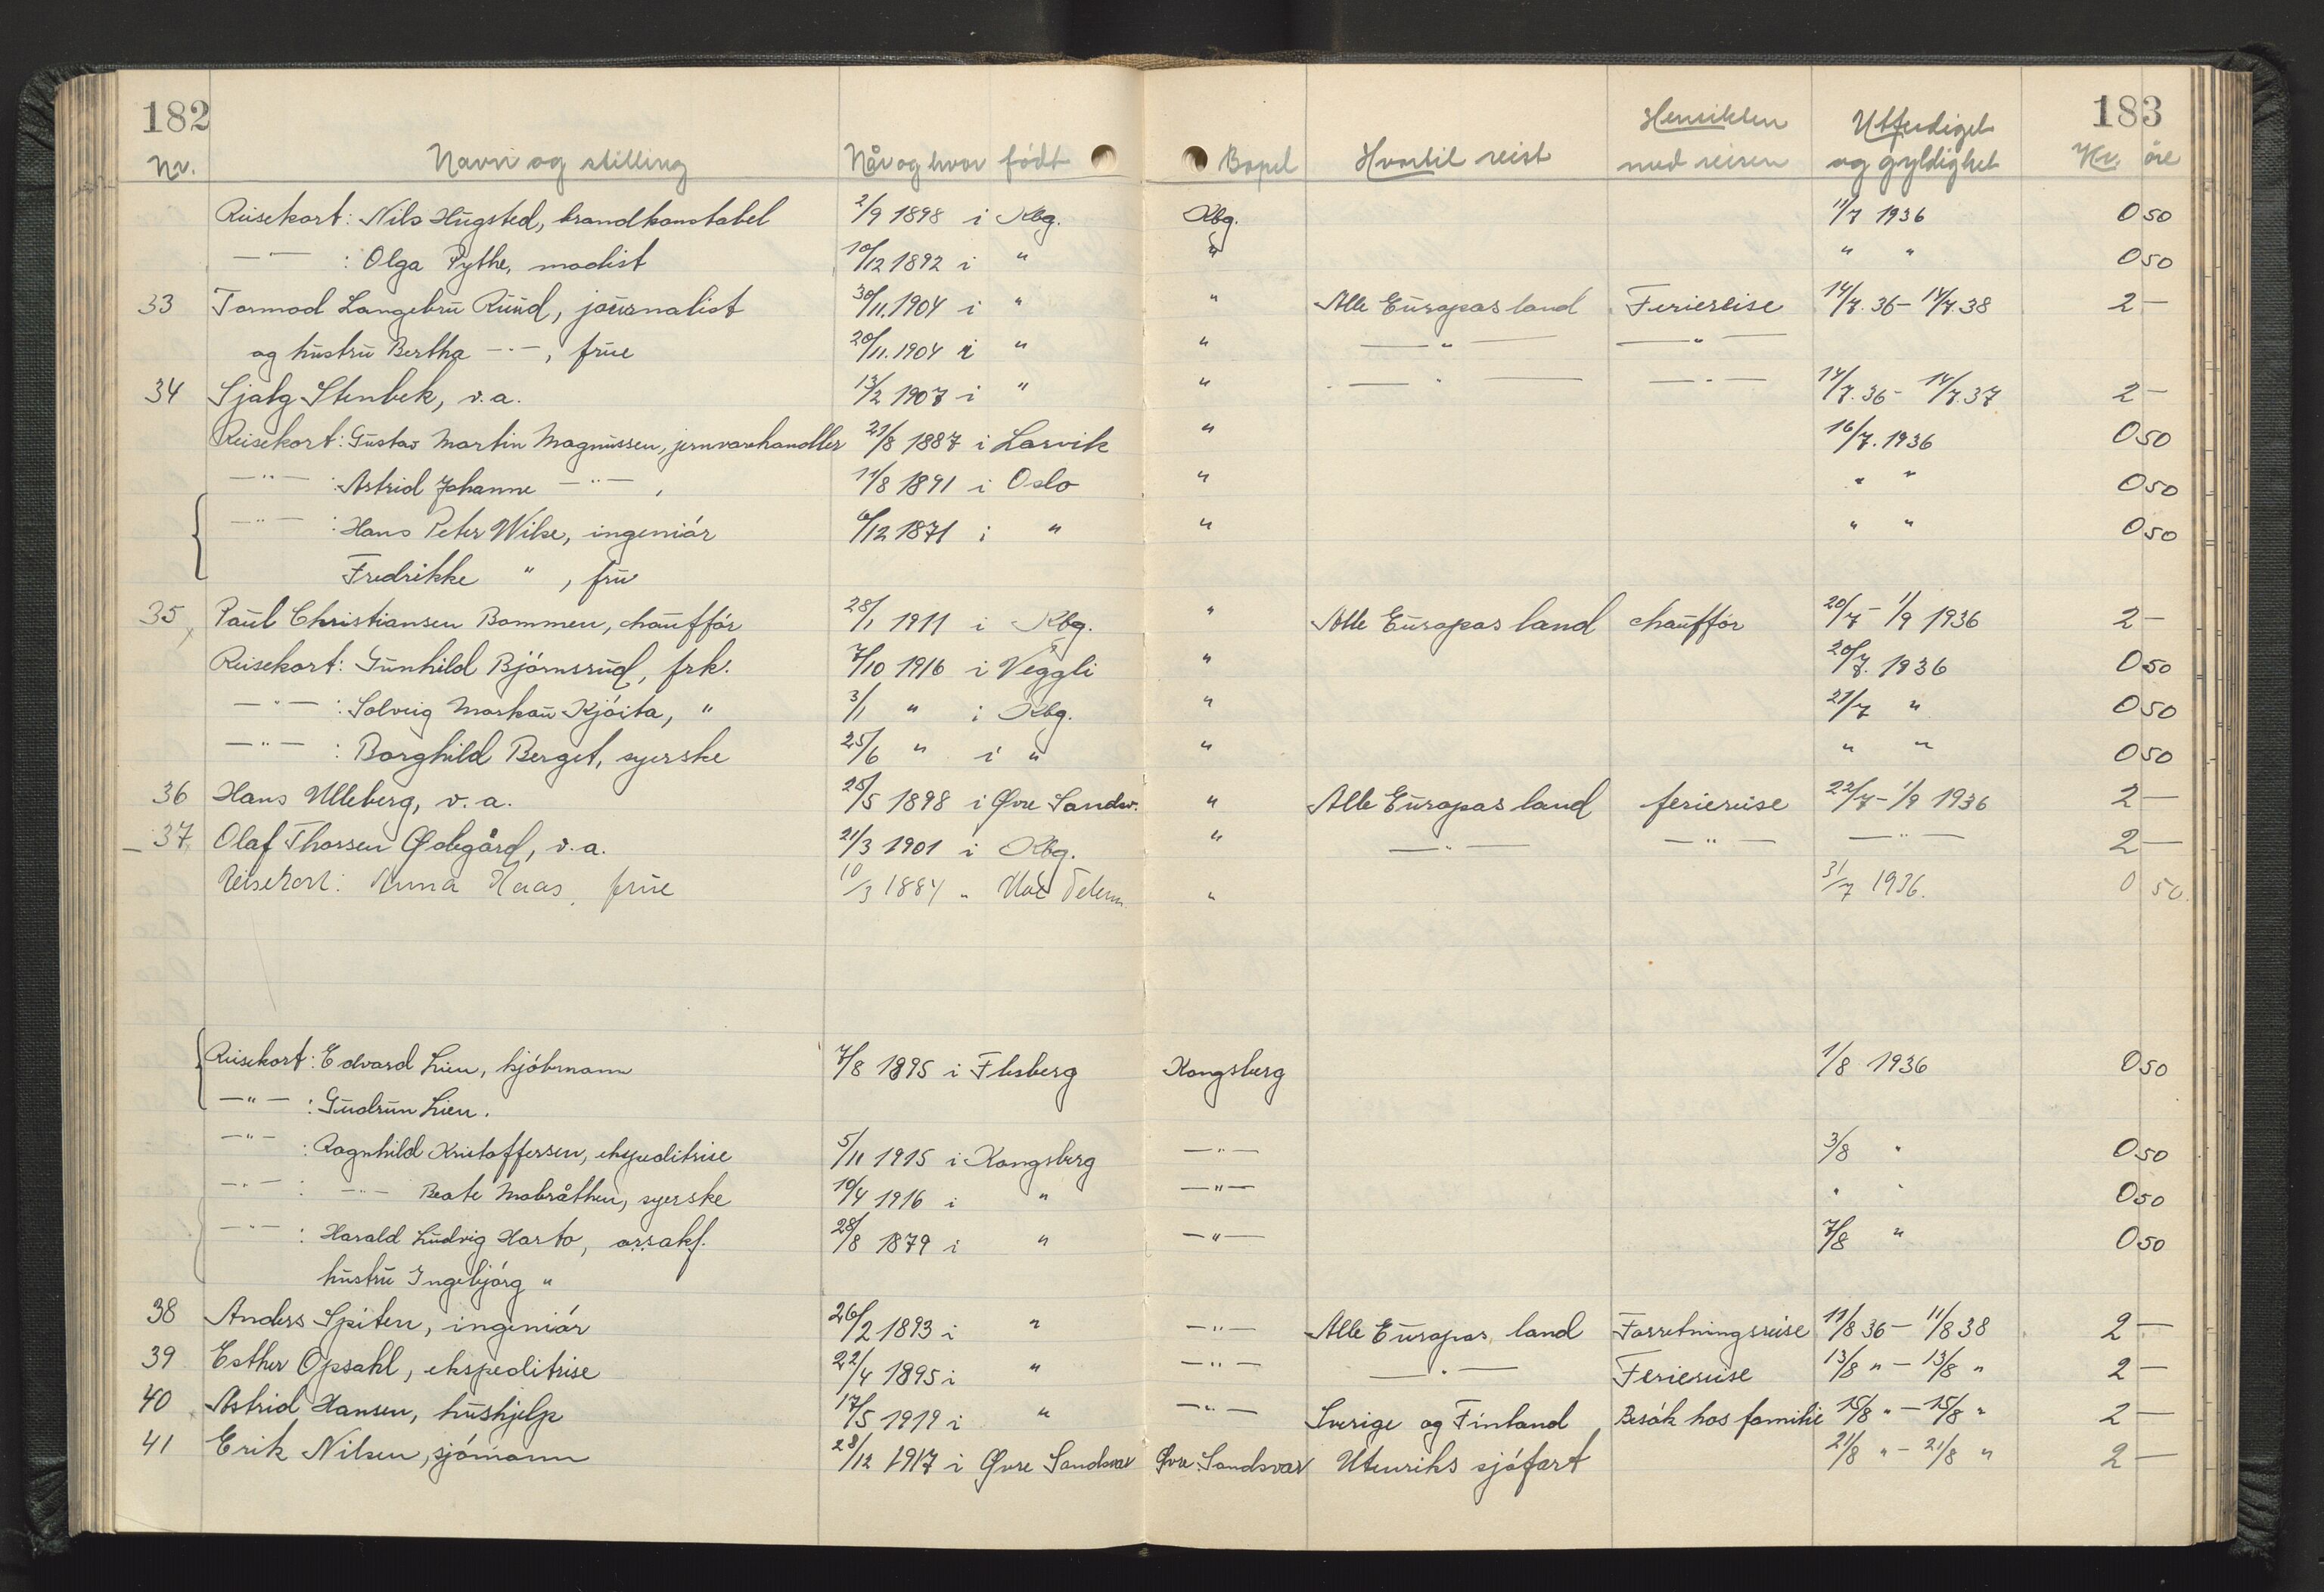 182 183
Nr. Navn og stilling Når og hvor født Bopel Hvortil reist Hensikten med reisen Utferdiget og gyldighet Kr. øre
Reisekort: Nils Hugsted, brandkonstabel 2/9 1898 i Kbg. Kbg. 11/7 1936 0 50
—"— : Olga Pythe, modist 10/12 1892 i " " " " 0 50
33 Tormod Langebru Ruud, journalist 30/11.1904 i " " Alle Europas land Feriereise 14/7.36 – 14/7.38 2 —
og hustru Bertha —"—, frue 20/11.1904 i " " —"— —"—
34 Sjalg Stenbek, v.a. 13/2 1907 i " " —"— —"— 14/7.36 – 14/7.37 2 —
Reisekort: Gustav Martin Magnussen, jernvarehandler 21/8 1887 i Larvik " 16/7.1936 0 50
—"— : Astrid Johanne —"—, 11/8 1891 i Oslo " " " 0 50
—"— : Hans Peter Wilse, ingeniór 6/12 1871 i " " " " 0 50
Fredrikke " , fru
35 Paul Christiansen Bommen, chauffór 28/1 1911 i Kbg. " Alle Europas land chauffór 20/7 – 1/9 1936 2 —
Reisekort: Gunhild Bjórnsrud, frk. 7/10 1916 i Veggli " 20/7.1936 0 50
—"— : Solveig Kjóita, " 3/1 " i Kbg. " 21/7 " 0 50
—"— : Borghild Berget, syerske 25/6 " i " " " " 0 50
36 Hans Ulleberg, v.a. 25/5 1898 i Øvre Sandsv. " Alle Europas land feriereise 22/7 – 1/9 1936 2 —
37 Olaf Thossen Ødegård, v.a. 21/3 1901 i Kbg. " —"— —"— —"— 2 —
Reisekort: Anna Haas, frue 10/3 1884 " Telem. " 31/7 1936. 0 50.
Reisekort: Edvard Lien, kjóbmann 7/8 1895 i Flesberg Kongsberg 1/8 1936 0 50
—"— : Gudrun Lien.
—"— : Ragnhild Kristoffersen, ekspeditrise 5/11 1915 i Kongsberg —"— 3/8 " 0 50
—"— : —"— Beate Mobråthen, syerske 10/4 1916 i " —"— " " 0 50
—"— : Harald Ludvig Harto, assakf. 28/8 1879 i " —"— 7/8 " 0 50
hustru Ingebjórg "
38 Anders Spiten, ingeniór 26/2 1893 i " —"— Alle Europas land Forretningsreise 11/8 36 – 11/8 38 2 —
39 Esther Opsahl, ekspeditrise 22/4 1895 i " —"— —"— Feriereise 13/8 " – 13/8 " 2 —
40 Astrid Hansen, hushjelp 17/5 1919 i " —"— Sverige og Finland Besók hos familie 15/8 " – 15/8 " 2 —
41 Erik Nilsen, sjómann 28/12 1917 i Øvre Sandsvær Øvre Sandsvær Utenriks sjófart 21/8 " – 21/8 " 2 —